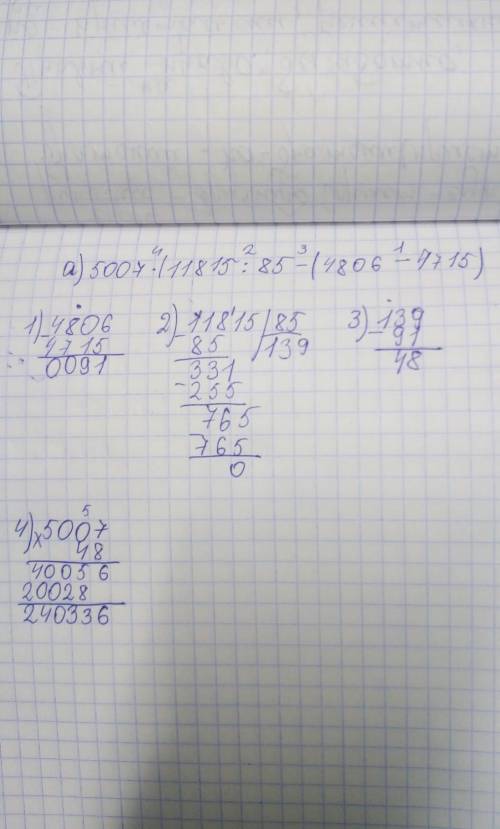 а) 5007·(11815:85-(4806-4715)
4 2 3 1
1) 4806
- 4715
0091
2) 11815 | 85
- 85 139
331
- 255
765
- 765
0
3) 139
- 91
48
4) 5007
5
x 48
40056
20028
240336